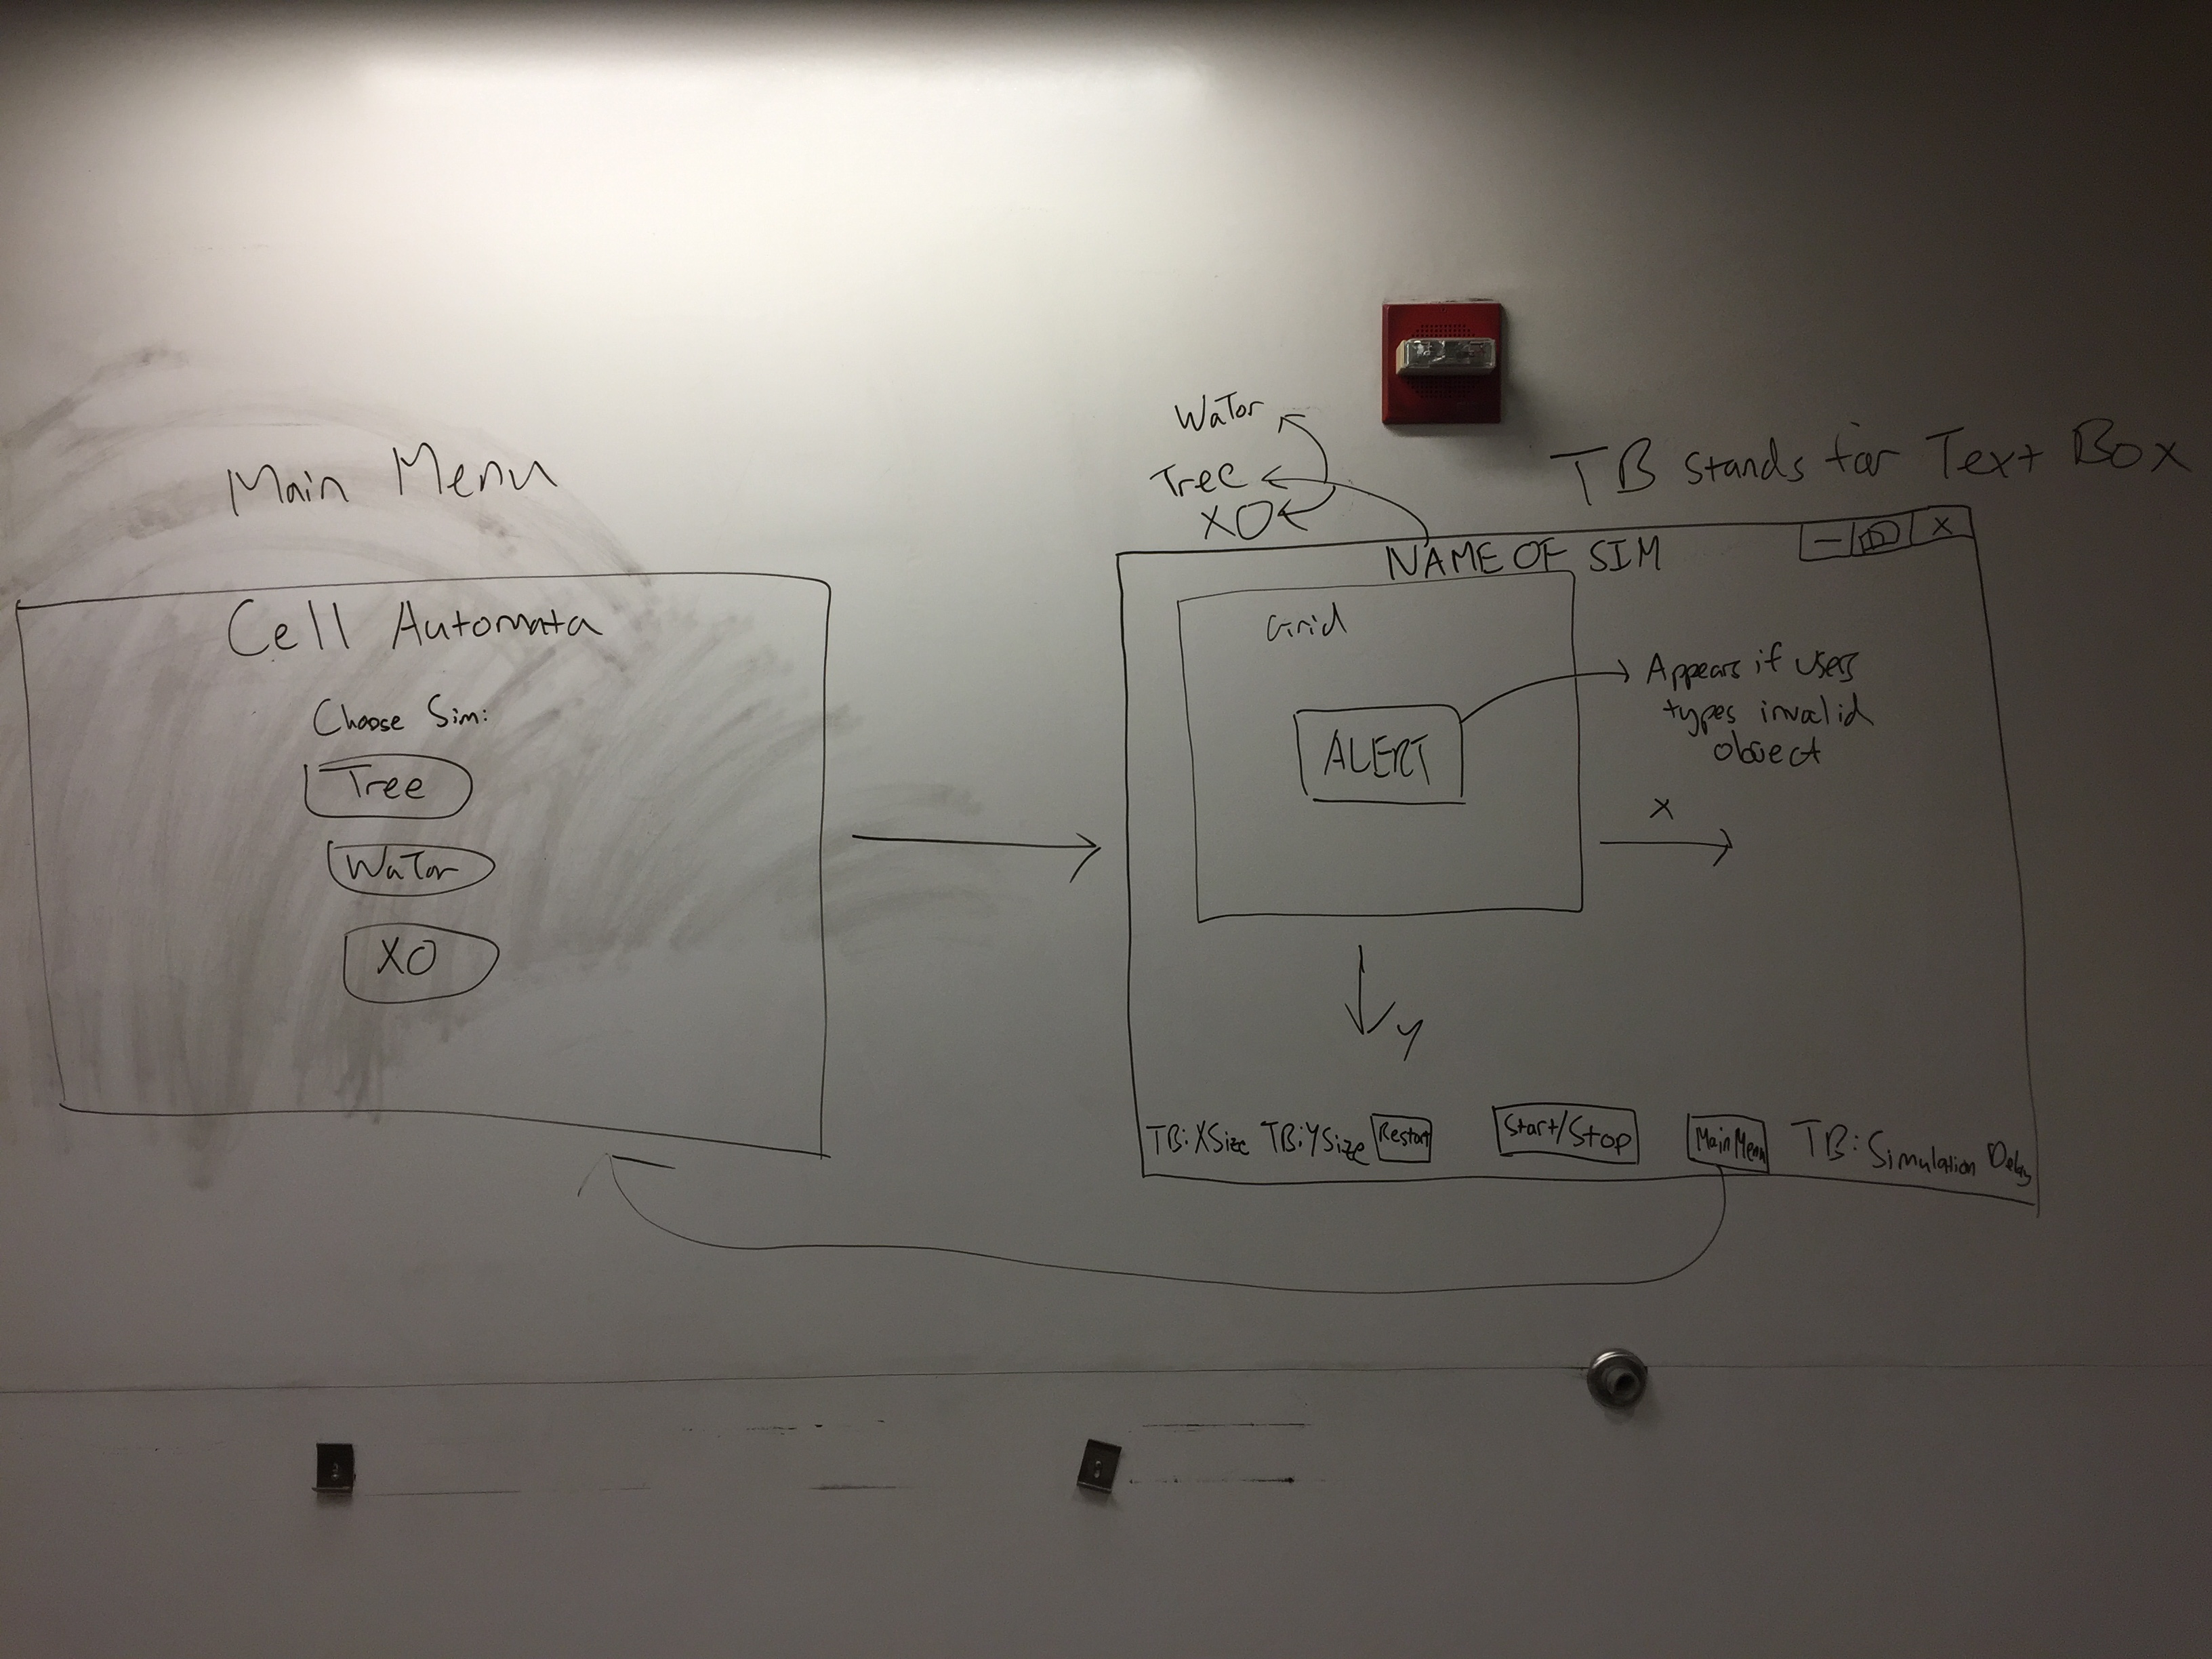 Main Menu
Cell Automata
Choose Sim:
Tree
WaTor
XO
WaTor
Tree
XO
TB stands for Text Box
NAME OF SIM
— X
Grid
ALERT
Appears if users
types invalid
object
X
Y
TB: XSize TB: YSize Restart Start/Stop Main Menu TB: Simulation Delay